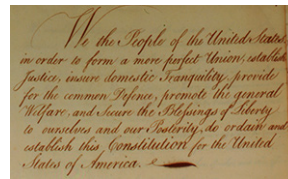 We the People of the United States,
in order to form a more perfect Union, establish
Justice, insure domestic Tranquility, provide
for the common Defence, promote the general
Welfare, and Secure the Blessings of Liberty
to ourselves and our Posterity, do ordain and
establish this Constitution for the United
States of America.